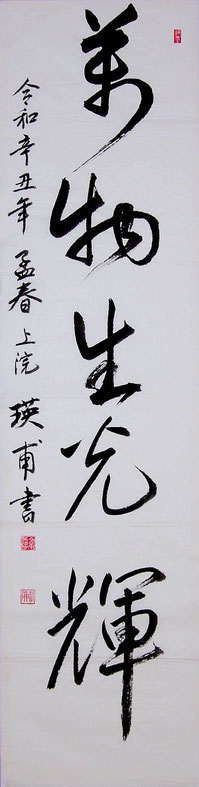 萬物生光輝
令和辛丑年 孟春 上浣 瑛甫書